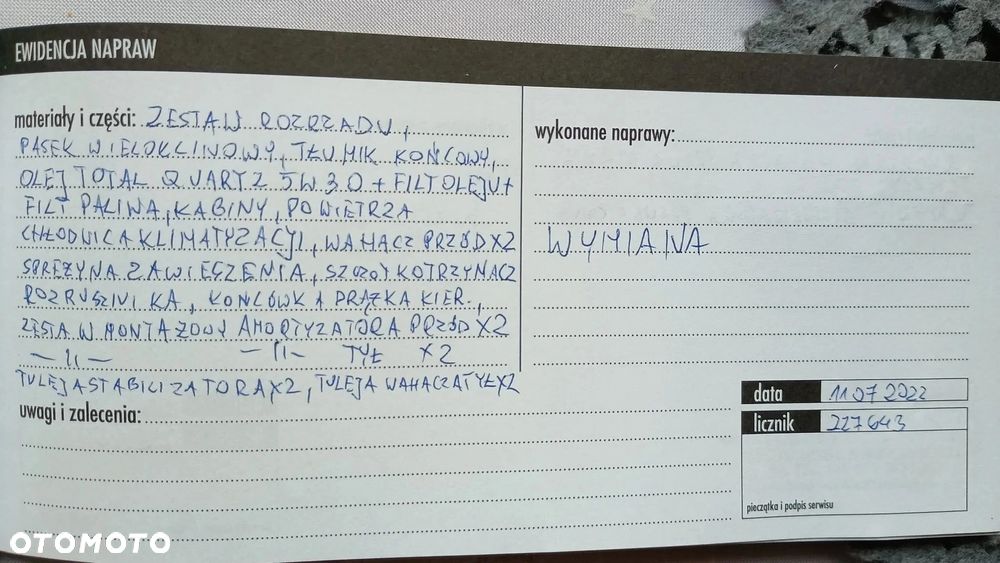 EWIDENCJA NAPRAW
materiały i części: ZESTAW ROZRZADU,
PASEK WIELOKLINOWY, TŁUMIK KOŃCOWY,
OLEJ TOTAL QUARTZ 5W30 + FILT OLEJU +
FILT PALIWA, KABINY, POWIETRZA
CHŁODNICA KLIMATYZACJI, WAHACZ PRZÓD X2
SPRĘŻYNA ZAWIESZENIA, SZCZOTKOTRZYMACZ
ROZRUSZNIKA, KOŃCÓWKA DRĄŻKA KIER.,
ZESTAW MONTAŻOWY AMORTYZATORA PRZÓD X2
— 11 — — 11 — TYŁ X2
TULEJA STABILIZATORA X2, TULEJA WAHACZA TYŁ X2
uwagi i zalecenia:
wykonane naprawy:
WYMIANA
data 11 07 2022
licznik 227643
pieczątka i podpis serwisu
OTOMOTO